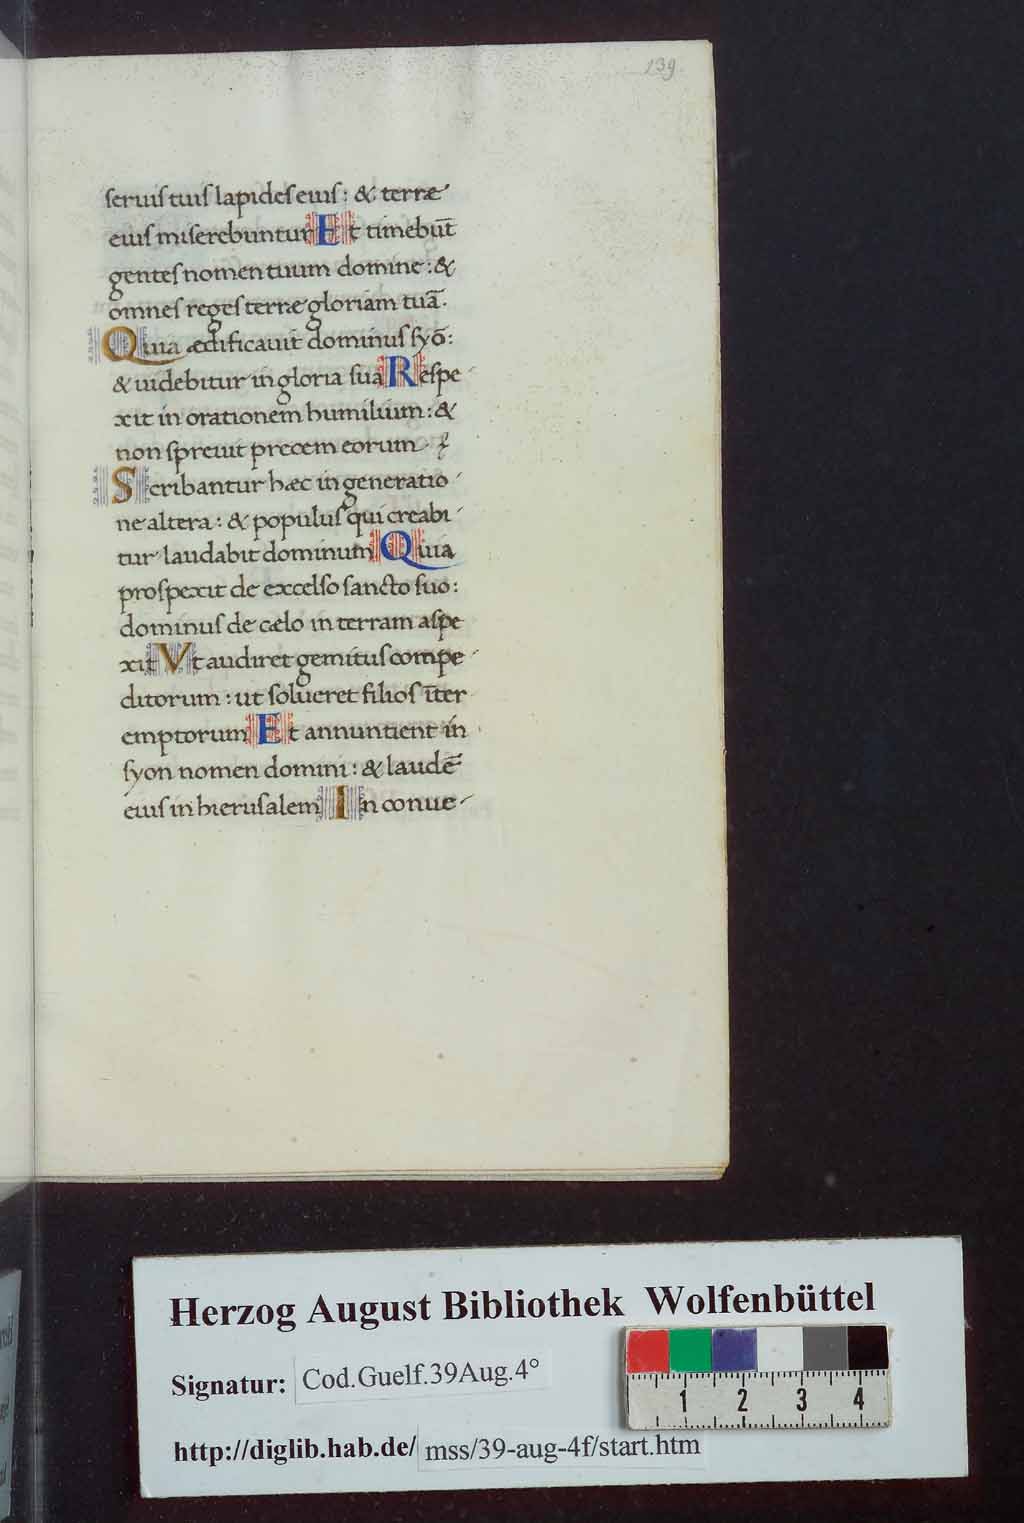 139
seruis tuis lapides eius: & terræ
eius miserebuntur Et timebūt
gentes nomen tuum domine: &
omnes reges terræ gloriam tuā.
Quia ædificauit dominus syō:
& uidebitur in gloria sua Respe
xit in orationem humilium: &
non spreuit precem eorum
Scribantur hæc in generatio
ne altera: & populus qui creabi
tur laudabit dominum Quia
prospexit de excelso sancto suo:
dominus de cælo in terram aspe
xit Vt audiret gemitus compe
ditorum: ut solueret filios īter
emptorum Et annuntient in
syon nomen domini: & laudē
eius in hierusalem In conue
Herzog August Bibliothek Wolfenbüttel
Signatur: Cod.Guelf.39Aug.4°
1 2 3 4
http://diglib.hab.de/ mss/39-aug-4f/start.htm